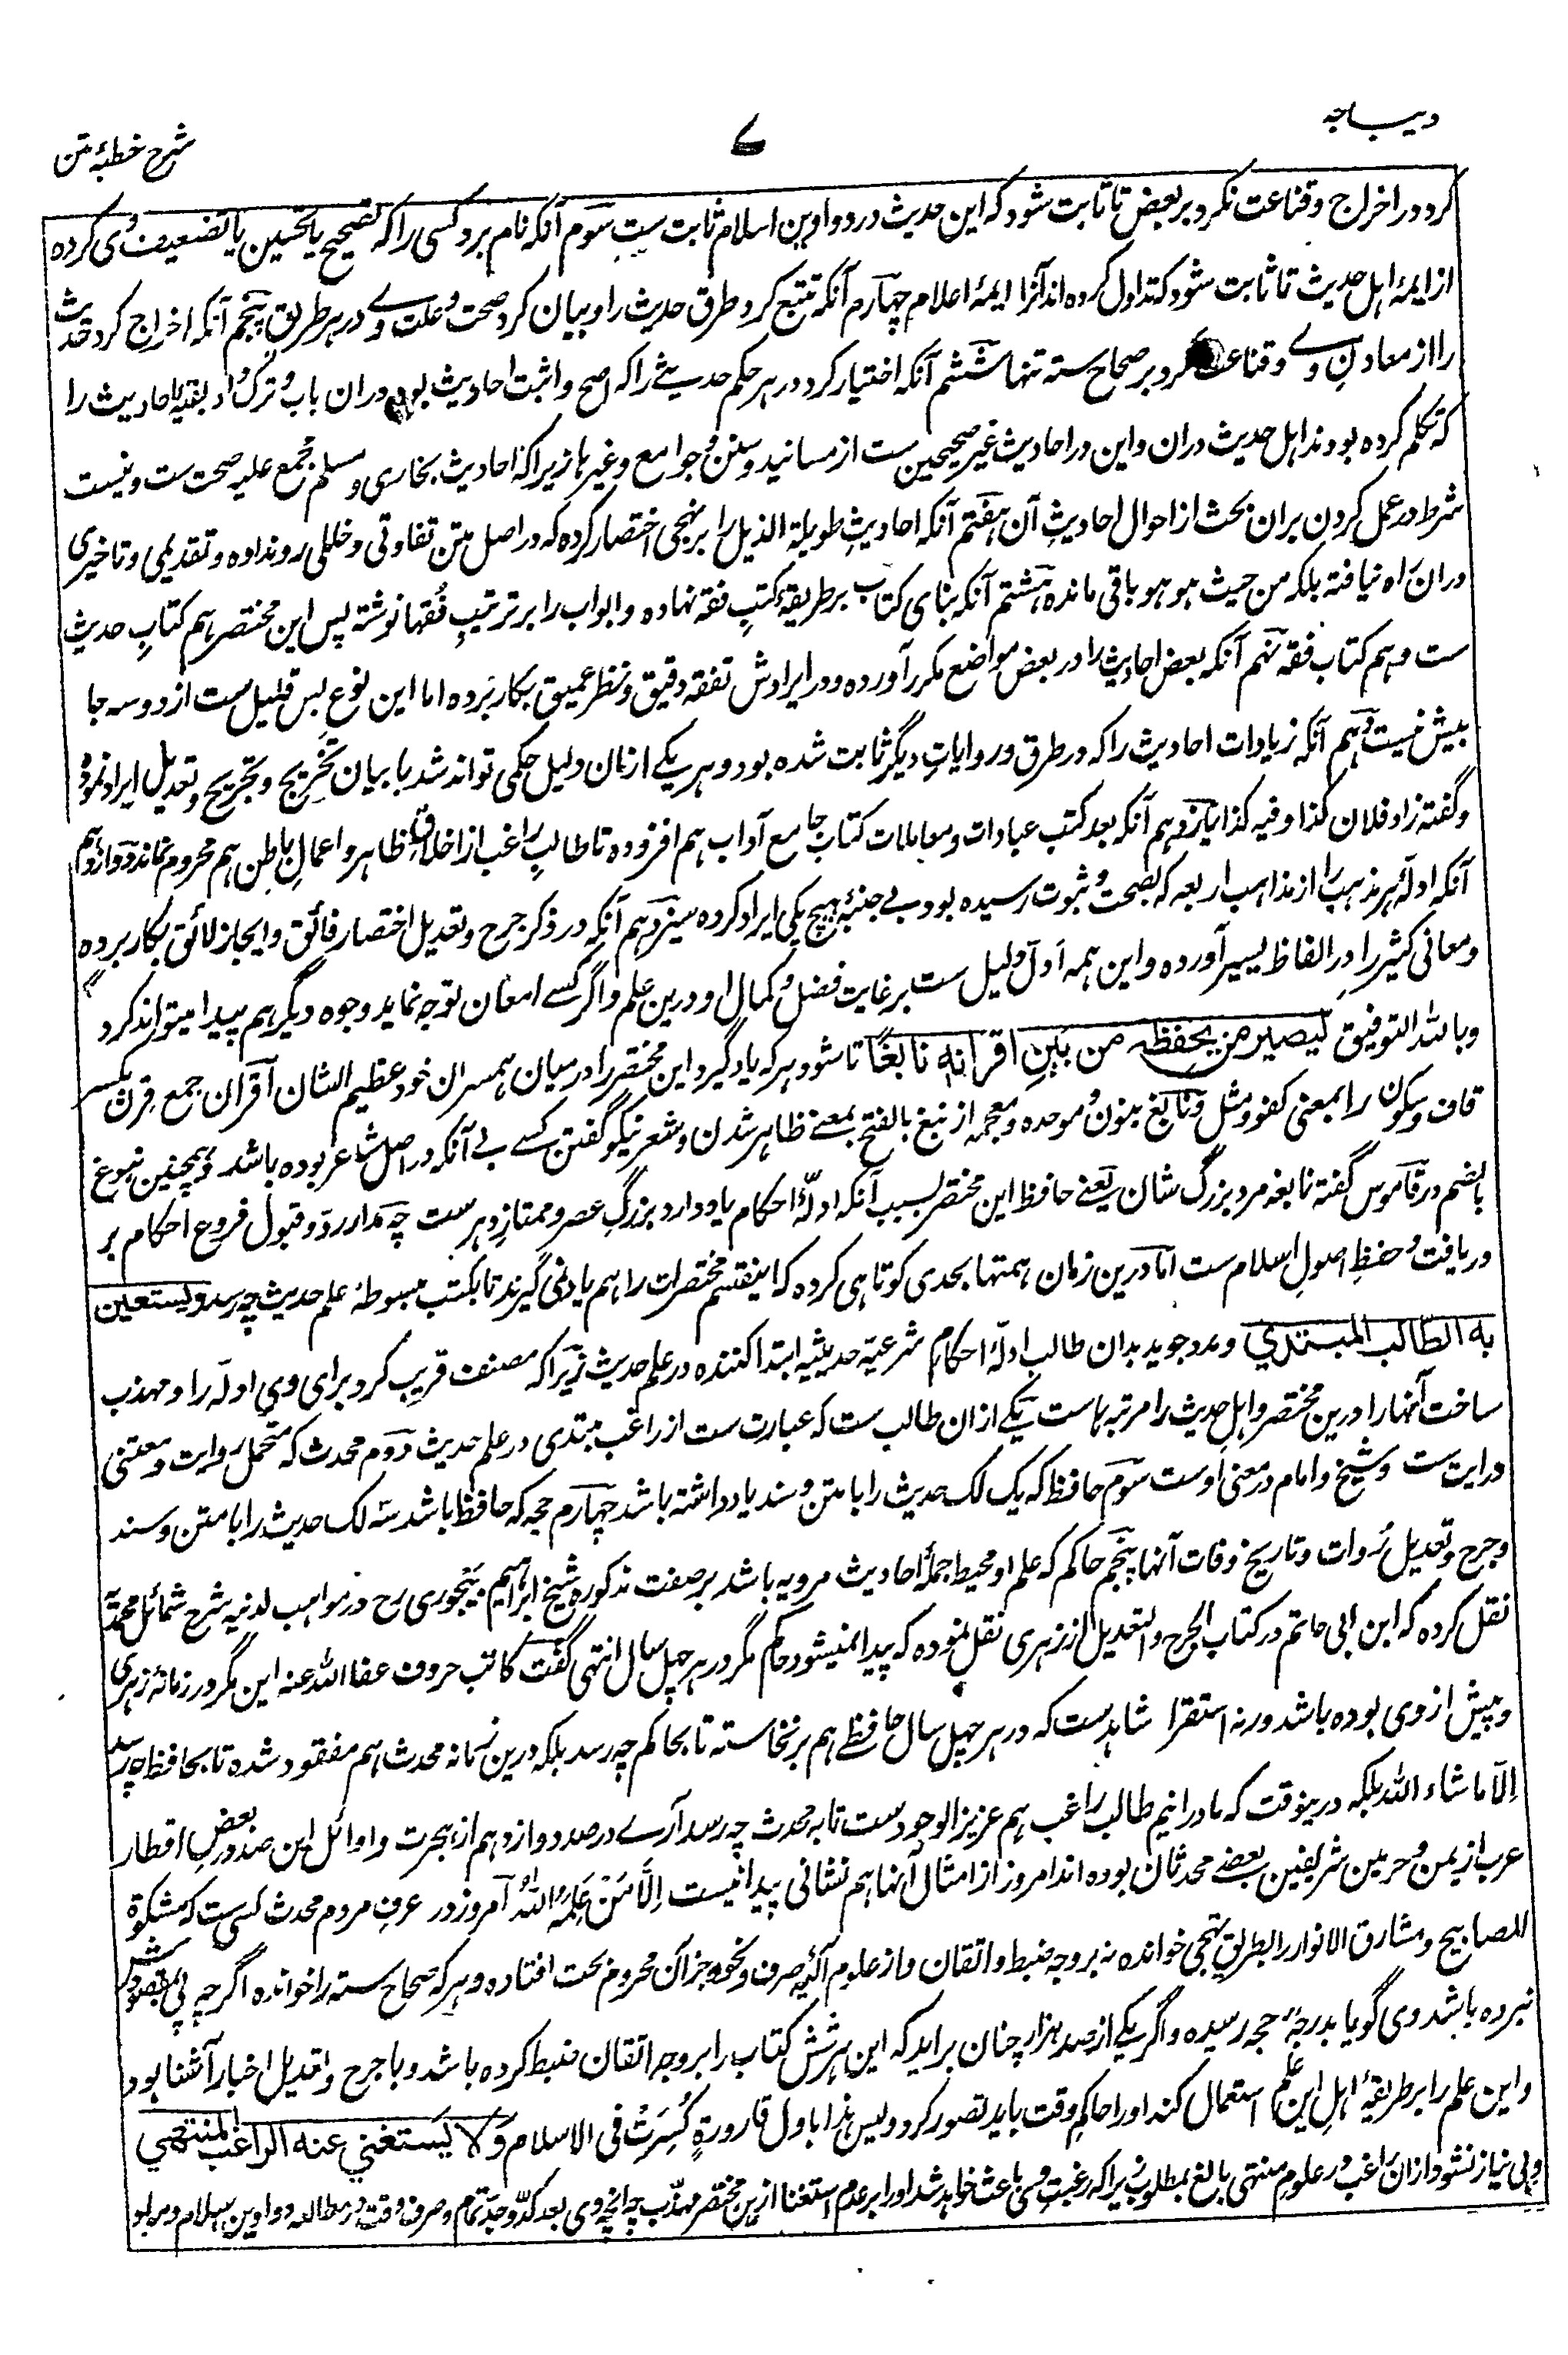 دیباجه
۷
شرح خطبۀ متن
کرد در اخراج و قناعت نکرد بر بعض تا ثابت شود که این حدیث در دواوین اسلام ثابت ست سوم آنکه نام برد کسی را که تصحیح یا تحسین یا تضعیف وی کرده
از ایمۀ اہل حدیث تا ثابت شود که تداول کرده اند آنرا ایمۀ اعلام چہارم آنکه تتبع کرد طرق حدیث را و بیان کرد صحت و علت وے در ہر طریق پنجم آنکه اخراج کرد حدیث
را از معادن وے و قناعت نکرد بر صحاح سته تنہا ششم آنکه اختیار کرد در ہر حکم حدیثے را که اصح و اثبت احادیث بود دران باب و ترک داد بقیۀ احادیث را
که تکلم کرده بودند اہل حدیث دران و این در احادیث غیر صحیحین ست از مسانید و سنن و جوامع و غیرہا زیرا که احادیث بخاری و مسلم مجمع علیه صحت ست و نیست
شرط در عمل کردن بران بحث از احوال احادیث آن ہفتم آنکه احادیث طویلة الذیل را بر نہجی اختصار کرده که در اصل متن تفاوتی و خللی رو نداده و تقدیمی و تاخیری
دران راه نیافته بلکه من حیث ہو ہو باقی مانده ہشتم آنکه بنای کتاب بر طریقۀ کتب فقه نہاده و ابواب را بر ترتیب فقہا نوشته پس این مختصر ہم کتاب حدیث
ست و ہم کتاب فقه نہم آنکه بعض احادیث را در بعض مواضع مکرر آورده و در ایرادش تفقه دقیق و نظر عمیق بکار برده اما این نوع بس قلیل ست از دو سه جا
بیش نیست دہم آنکه زیادات احادیث را که در طرق و روایات دیگر ثابت شده بود و ہر یکے ازنان دلیل حکمی تواند شد با بیان تخریج و تجریح و تعدیل ایراد نموده
و گفته زاد فلان کذا و فیه کذا یازدہم آنکه بعد کتب عبادات و معاملات کتاب جامع آداب ہم افزوده تا طالب راغب از اخلاق ظاہر و اعمال باطن ہم محروم نماند دوازدہم
آنکه ادلّۀ ہر مذہب را از مذاہب اربعه که بصحت و ثبوت رسیده بود بے جنبۀ ہیچ یکی ایراد کرده سیزدہم آنکه در ذکر جرح و تعدیل اختصار فائق و ایجاز لائق بکار برده
و معانی کثیر را در الفاظ یسیر آورده و این ہمه اول دلیل ست بر غایت فضل و کمال او درین علم و اگر کسے امعان توجه نماید وجوه دیگر ہم پیدا میتواند کرد
و بالله التوفیق لیصیر من یحفظہ من بین اقرانه نابغًا تا شود ہر که یاد گیرد این مختصر را در میان ہمسران خود عظیم الشان اقران جمع قرن بکسر
قاف و سکون را بمعنی کفو و مثل و نابغ بنون و موحده و معجمه از نبغ بالفتح بمعنے ظاہر شدن و شعر نیکو گفتن کسے بے آنکه در اصل شاعر بوده باشد و ہمچنین نبوغ
بالضم در قاموس گفته نابغه مرد بزرگ شان یعنے حافظ این مختصر بسبب آنکه ادلّۀ احکام یاد دارد بزرگ عصر و ممتاز دہر ست چه مدار رد و قبول فروع احکام بر
دریافت و حفظ اصول اسلام ست اما درین زمان ہمتہا بحدی کوتاہی کرده که اینقسم مختصرات را ہم یاد نمی گیرند تا بکتب مبسوطۀ علم حدیث چه رسد ویستعین
به الطالب المبتدي و مدد جوید بدان طالب ادلّۀ احکام شرعیّه حدیثیه ابتدا کننده در علم حدیث زیرا که مصنف قریب کرد برای وی ادلّه را و مہذب
ساخت آنہا را درین مختصر و اہل حدیث را مرتبه ہاست یکے ازان طالب ست که عبارت ست از راغب مبتدی در علم حدیث دوم محدث که متحمل روایت و معتنی
درایت ست و شیخ و امام در معنی اوست سوم حافظ که یک لک حدیث را با متن و سند یاد داشته باشد چہارم حجه که حافظ باشد سه لک حدیث را با متن و سند
و جرح و تعدیل رُوات و تاریخ وفات آنہا پنجم حاکم که علم او محیط جملۀ احادیث مرویه باشد بر صفت مذکوره شیخ ابراہیم بیجوری رح در مواہب لدنیه شرح شمائل محمدیه
نقل کرده که ابن ابی حاتم در کتاب الجرح و التعدیل از زہری نقل نموده که پیدا نمیشود حاکم مگر در ہر چہل سال انتہی گفت کاتب حروف عفا الله عنه این مگر در زمانۀ زہری
و پیش از وی بوده باشد ورنه استقرا شاہد ست که در ہر چہل سال حافظے ہم برنخاسته تا بحاکم چه رسد بلکه درین زمانه محدث ہم مفقود شده تا بحافظ چه رسد
الّا ماشاء الله بلکه درینوقت که ما درانیم طالب راغب ہم عزیز الوجود ست تا به محدث چه رسد آرے در صد دوازدہم از ہجرت و اوائل این صد در بعض اقطار
عرب از یمن و حرمین شریفین بعضے محدثان بوده اند امروز از امثال آنہا ہم نشانی پیدا نیست اِلَّا مَنْ عَلِمَهُ اللّٰهُ امروز در عرف مردم محدث کسی ست که مشکوٰة
المصابیح و مشارق الانوار را بطریق تہجی خوانده نه بر وجه ضبط و اتقان و از علوم آلیّه صرف و نحو و جز آن محروم بحت افتاده و ہر که صحاح سته را خوانده اگرچه پی بمقصودش
نبرده باشد وی گویا بدرجۀ حجه رسیده و اگر یکے از صد ہزار چنان براید که این ہر شش کتاب را بر وجه اتقان ضبط کرده باشد و با جرح و تعدیل اخبار آشنا بود
و این علم را بر طریقۀ اہل این علم استعمال کند او را حاکم وقت باید تصور کرد و لیس ہذا باول قارورةٍ کُسِرَتْ فی الاسلام وَلا یَستغنی عنه الراغب المنتهي
و بی نیاز نشود ازان راغب در علوم منتہی بالغ بمطلوب زیرا که رغبت وی باعث خواہد شد او را بر عدم استغنا ازین مختصر مہذّب چه آنچه وی بعد کدّ و جدّ تمام و صرف وقت در مطالعه دواوین اسلام